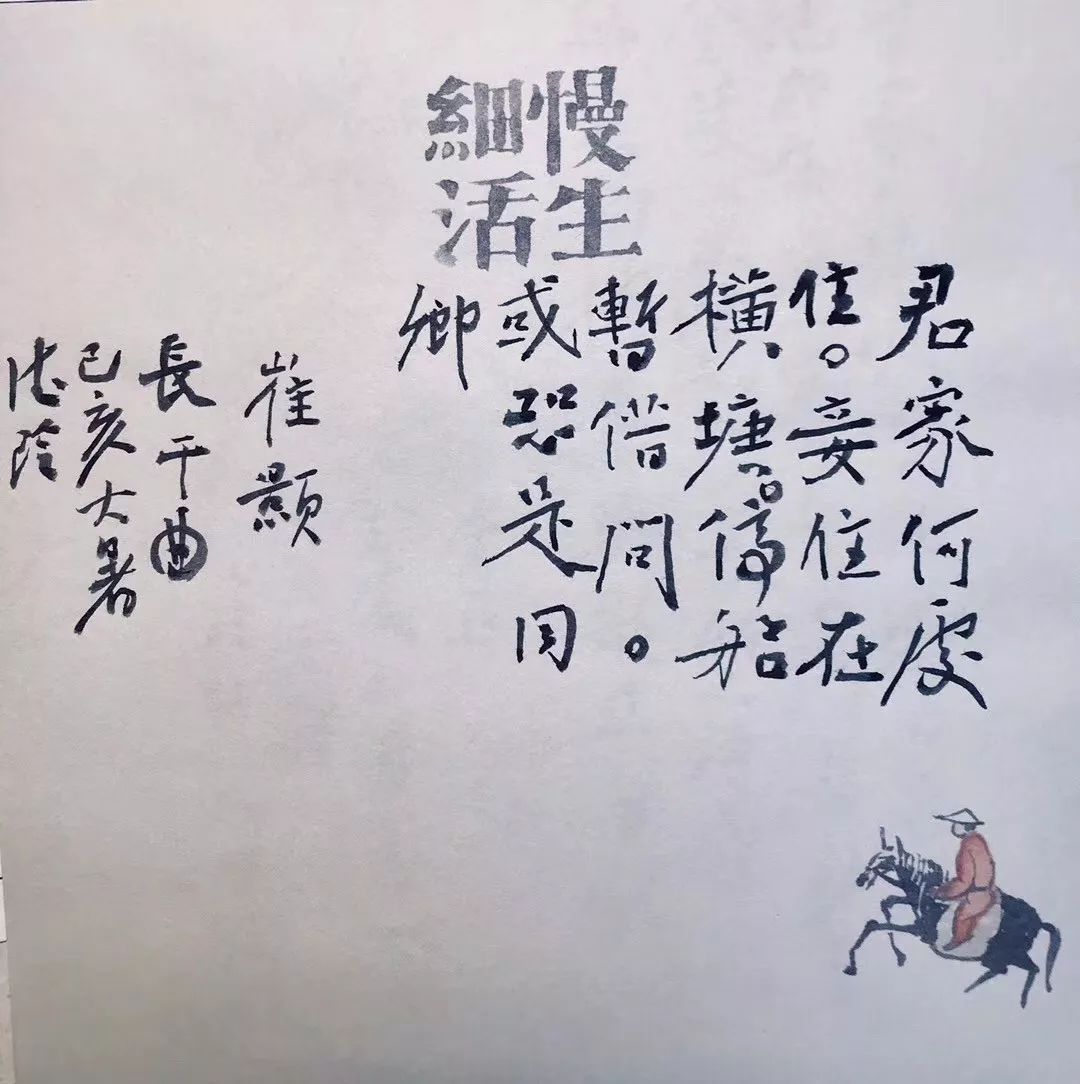 慢細
生活
君家何處
住。妾住在
橫塘。停船
暫借問。
或恐是同
鄉
崔顥
長干曲
己亥大暑